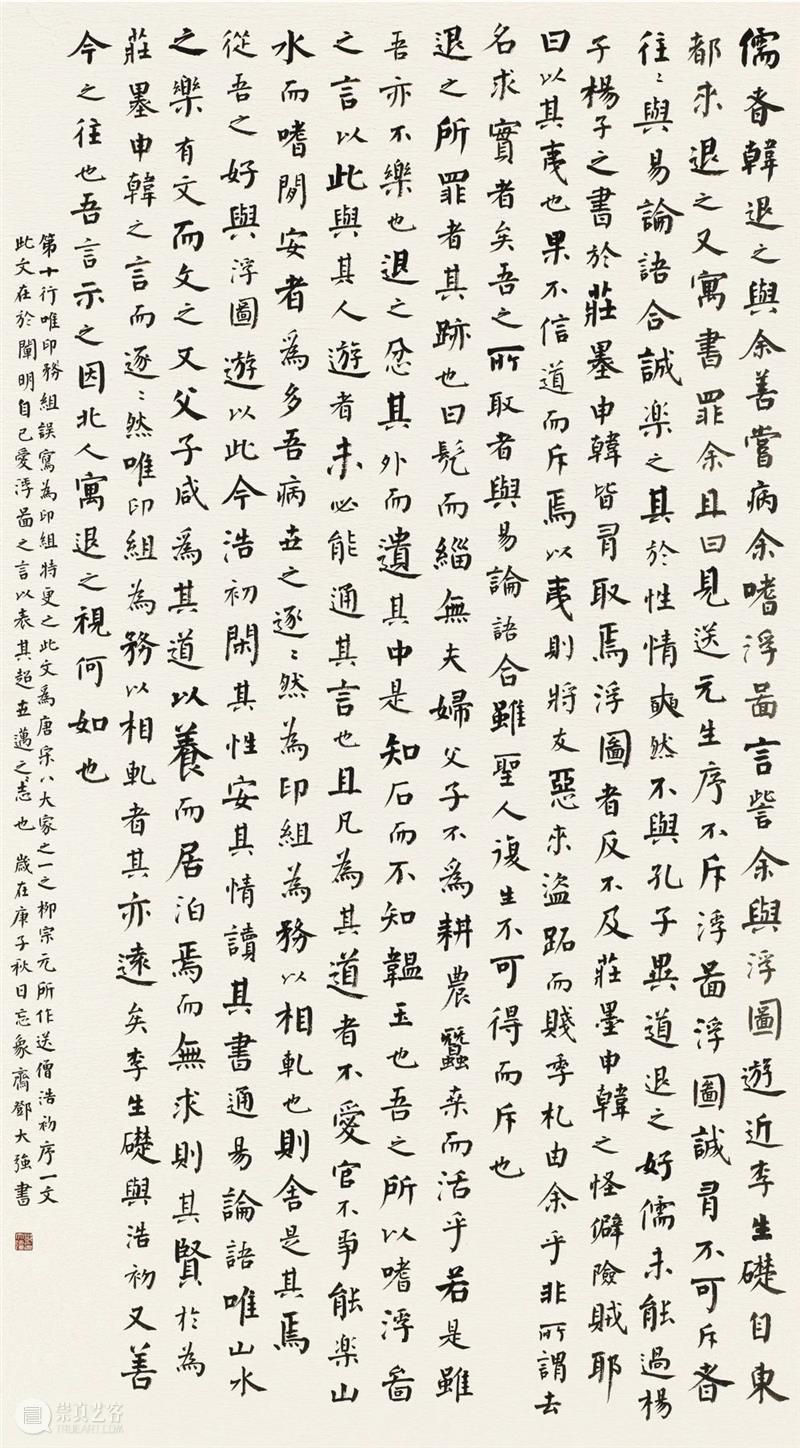 儒者韓退之與余善嘗病余嗜浮啚言訾余與浮圖遊近李生礎自東
都来退之又寓書罪余且曰見送元生序不斥浮啚浮圖誠有不可斥者
往〻與易論語合誠樂之其於性情奭然不與孔子異道退之好儒未能過楊
子楊子之書於莊墨申韓皆有取焉浮圖者反不及莊墨申韓之怪僻險賊耶
曰以其夷也果不信道而斥焉以夷則將友惡来盜跖而賤季札由余乎非所謂去
名求實者矣吾之所取者與易論語合雖聖人復生不可得而斥也
退之所罪者其跡也曰髡而緇無夫婦父子不為耕農蠶桒而活乎若是雖
吾亦不樂也退之忿其外而遺其中是知石而不知韞玉也吾之所以嗜浮啚
之言以此與其人遊者未必能通其言也且凡為其道者不愛官不爭能樂山
水而嗜閒安者為多吾病世之逐〻然為印組為務以相軋也則舍是其焉
從吾之好與浮圖遊以此今浩初閑其性安其情讀其書通易論語唯山水
之樂有文而文之又父子咸為其道以養而居泊焉而無求則其賢於為
莊墨申韓之言而逐〻然唯印組為務以相軋者其亦遠矣李生礎與浩初又善
今之往也吾言示之因北人寓退之視何如也
第十行唯印務組誤寫為印組特更之此文為唐宋八大家之一之柳宗元所作送僧浩初序一文
此文在於闡明自己愛浮啚之言以表其超世邁之志也 歲在庚子秋日忘象齋鄧大強書
崇真艺客
TRUEART.COM